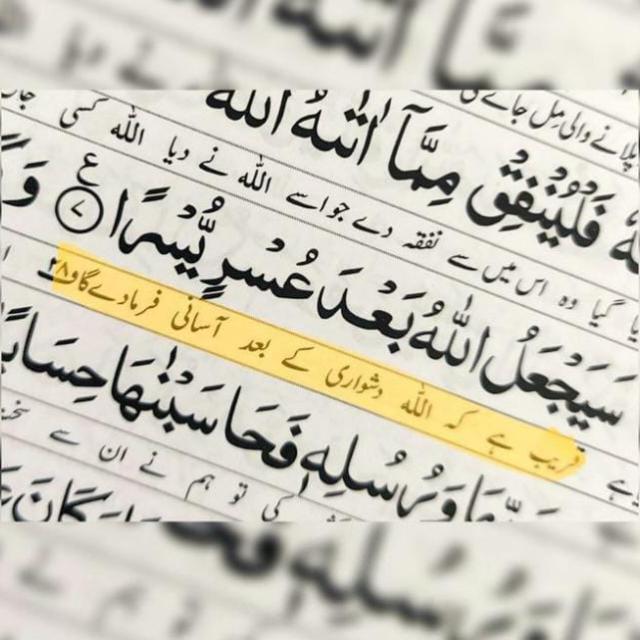 پلانے والی مل جائے گی
فَلْيُنْفِقْ مِمَّآ اٰتٰىهُ اللّٰهُ
گیا وہ اس میں سے نفقہ دے جو اسے اللہ نے دیا اللہ کسی جان
سَيَجْعَلُ اللّٰهُ بَعْدَ عُسْرٍ يُّسْرًا ۷ ع
قریب ہے کہ اللہ دشواری کے بعد آسانی فرمادے گا ف۲۸
وَرُسُلِهٖ فَحَاسَبْنٰهَا حِسَابًا
تو ہم نے ان سے سخت